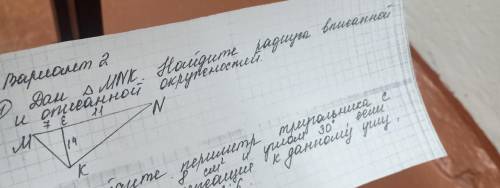 Вариант 2
① Дан △ MNK. Найдите радиусы вписанной
и описанной окружностей.
7 E 11
M N
14
K
периметр треугольника с
8 см и углом 30° если
к данному углу.